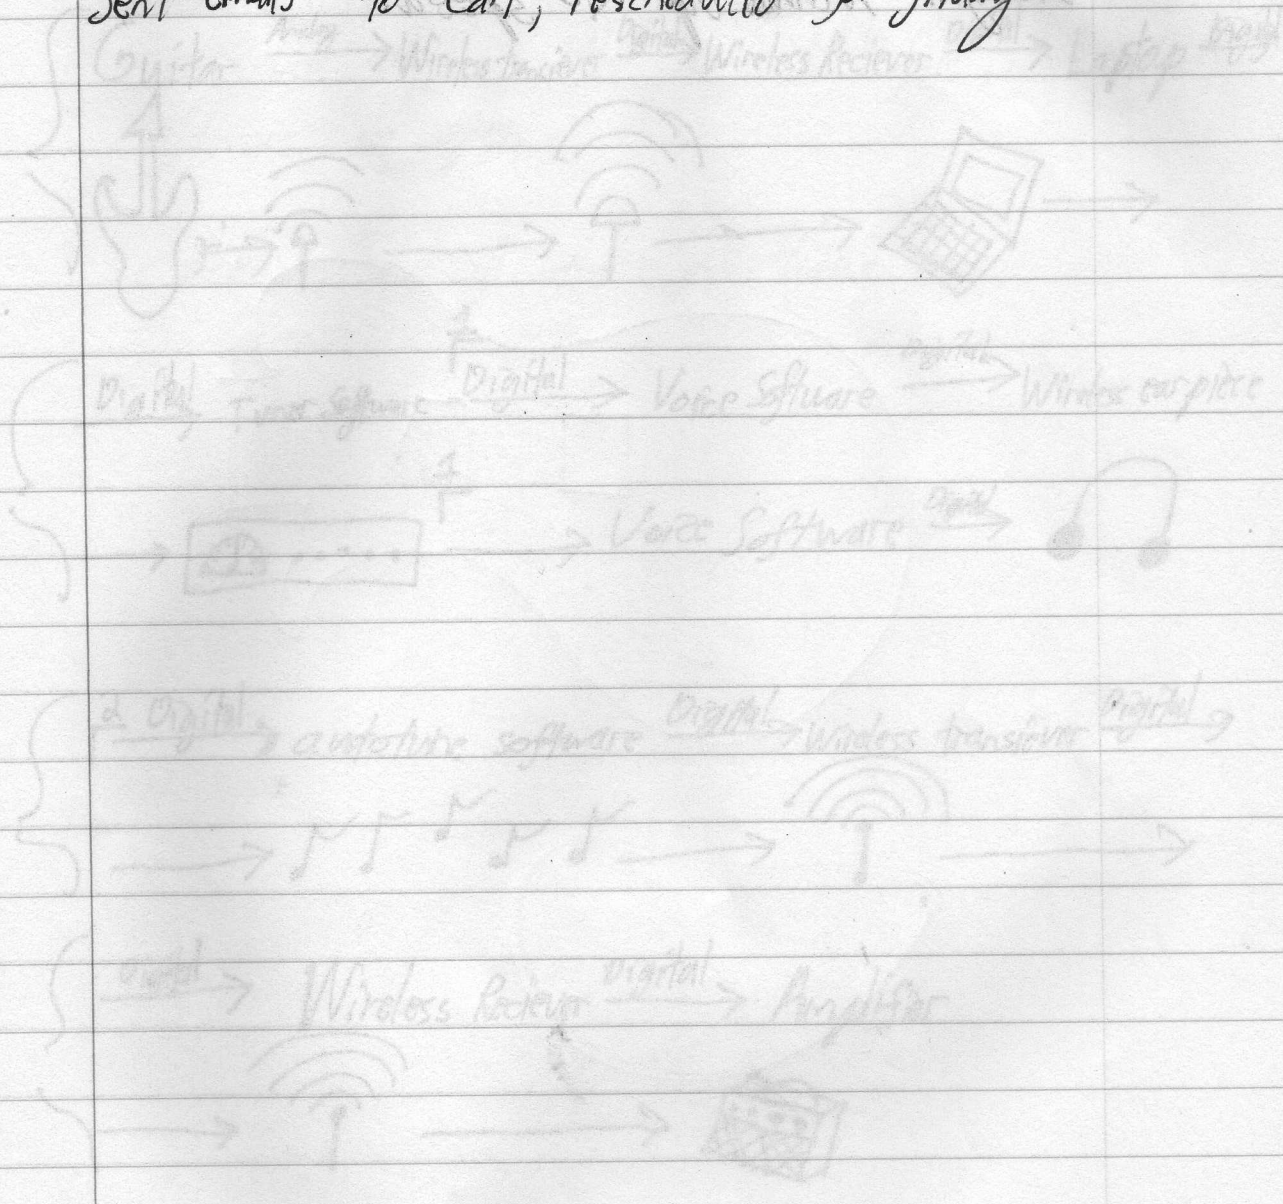 Sent emails to Carl, rescheduled for friday
Guitar Analog Wireless Tranciever Digital Wireless Reciever Digital Laptop Digital
Digital Tuner Software Digital Voice Software Digital Wireless earpiece
Voice Software Digital
2 Digital autotune software Digital Wireless transiever Digital
Digital Wireless Reciever Digital Amplifier